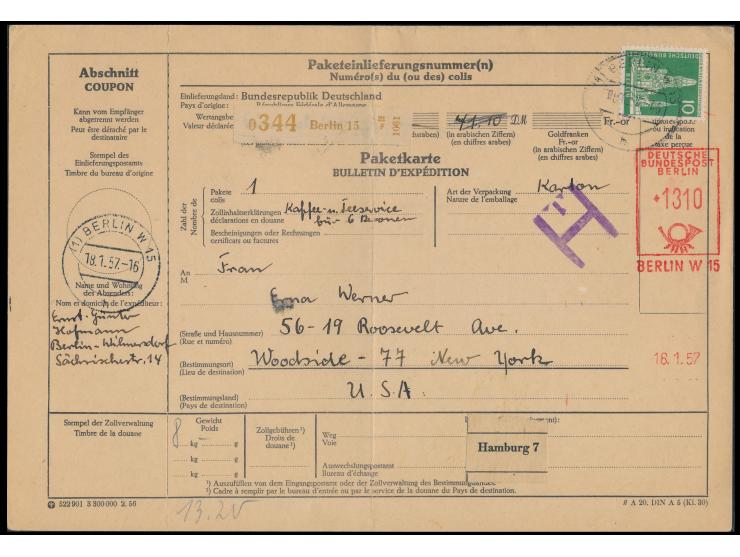 Abschnitt
COUPON
Kann vom Empfänger
abgetrennt werden
Peut être détaché par le
destinataire
Stempel des
Einlieferungspostamts
Timbre du bureau d'origine
(1) BERLIN W 15
18.1.57.-16
Name und Wohnung
des Absenders:
Nom et domicile de l'expéditeur:
Ernst-Günter
Hofmann
Berlin-Wilmersdorf
Sächsischestr. 14
Paketeinlieferungsnummer(n)
Numéro(s) du (ou des) colis
Einlieferungsland: Bundesrepublik Deutschland
Pays d'origine: République Fédérale d'Allemagne
Wertangabe
Valeur déclarée
0344 Berlin 15
41.10 DM
(in arabischen Ziffern)
(en chiffres arabes)
Goldfranken
Fr.-or
(in arabischen Ziffern)
(en chiffres arabes)
Fr.-or
ou indication
de la
taxe perçue
DEUTSCHE BUNDESPOST
10
Paketkarte
BULLETIN D'EXPÉDITION
Zahl der
Nombre de
Pakete
colis
1
Zollinhaltserklärungen
déclarations en douane
Kaffee-u. Teeservice
für 6 Personen
Bescheinigungen oder Rechnungen
certificats ou factures
Art der Verpackung
Nature de l'emballage
Karton
T
DEUTSCHE
BUNDESPOST
BERLIN
1310
BERLIN W 15
18.1.57
An
M
Frau
Erna Werner
(Straße und Hausnummer)
(Rue et numéro)
56-19 Roosevelt Ave.
(Bestimmungsort)
(Lieu de destination)
Woodside-77 New York
(Bestimmungsland)
(Pays de destination)
U.S.A.
Stempel der Zollverwaltung
Timbre de la douane
Gewicht
Poids
8 kg g
kg g
kg g
Zollgebühren ²)
Droits de
douane ²)
Weg
Voie
Hamburg 7
Auswechslungspostamt
Bureau d'échange
¹) Auszufüllen von dem Eingangspostamt oder der Zollverwaltung des Bestimmungslandes.
²) Cadre à remplir par le bureau d'entrée ou par le service de la douane du Pays de destination.
522 901 3 300 000 2. 56
A 20. DIN A 5 (Kl. 30)